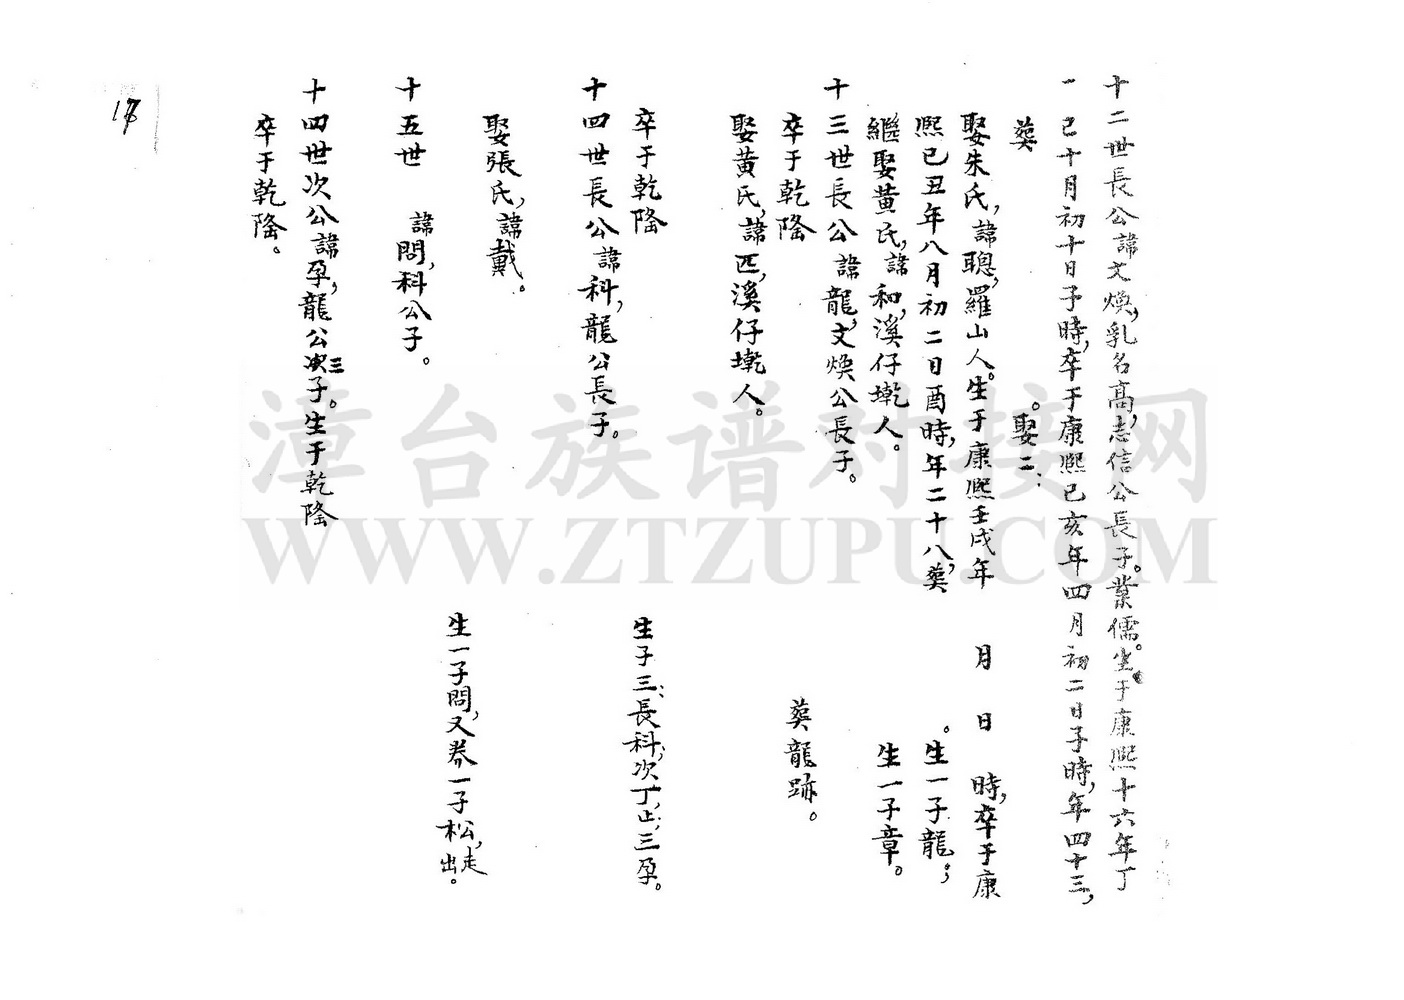 十二世長公諱文煥,乳名高,志信公長子。業儒。生于康熙十六年丁
一巳十月初十日子時,卒于康熙己亥年四月初二日子時,年四十三,
葬 。娶二:
娶朱氏,諱聰,羅山人。生于康熙壬戌年 月 日 時,卒于康
熙己丑年八月初二日酉時,年二十八,葬 。生一子龍。;
繼娶黃氏,諱和,溪仔墘人。 生一子章。
十三世長公諱龍,文煥公長子。
卒于乾隆 葬龍跡。
娶黃氏,諱匹,溪仔墘人。
卒于乾隆 生子三:長科,次丁,止,三孕。
十四世長公諱科,龍公長子。
娶張氏,諱戴。
生一子問,又養一子松,走出。
十五世 諱問,科公子。
十四世次公諱孕,龍公三子。生于乾隆
卒于乾隆。
17
漳台族谱对接网
WWW.ZTZUPU.COM